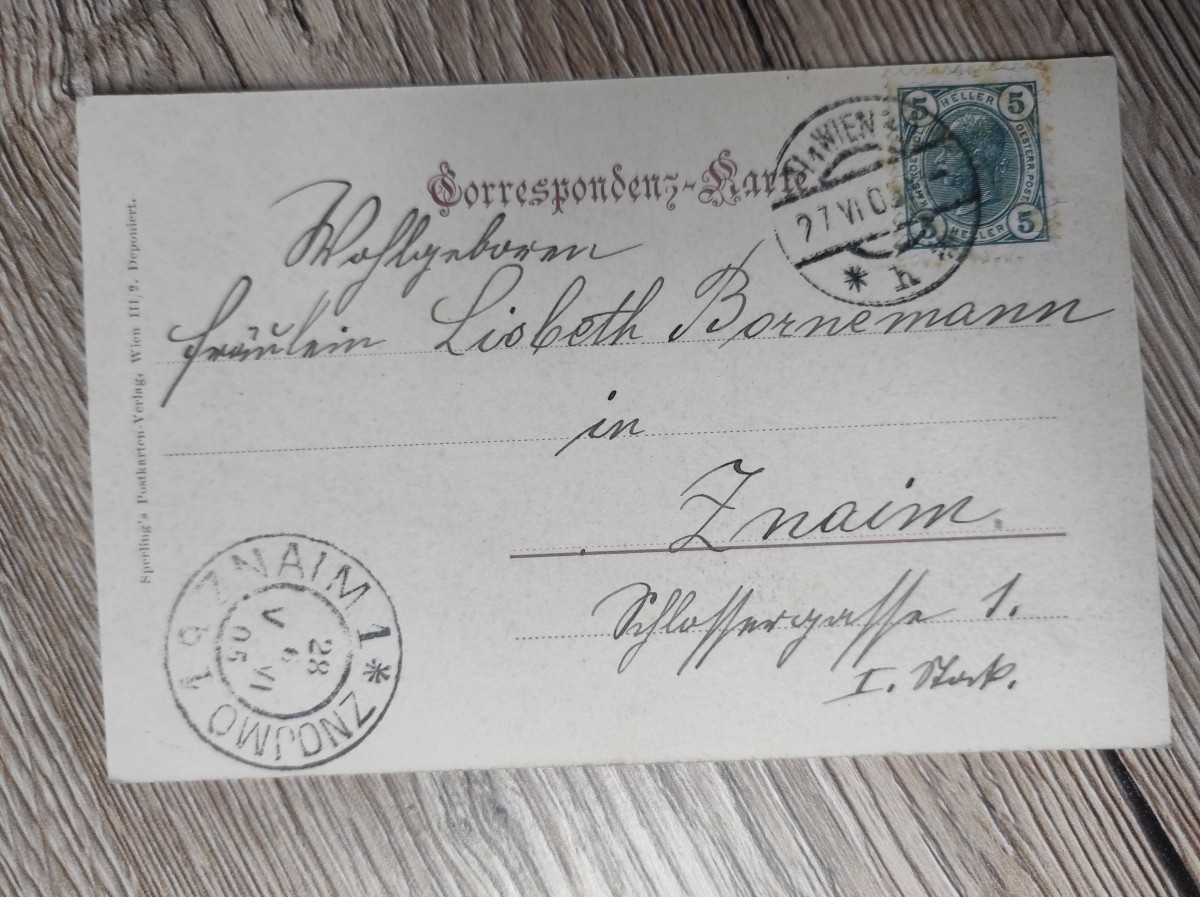 Correspondenz-Karte
5 HELLER 5
OESTERR. POST
5 HELLER 5
WIEN
27 VI 05
Wohlgeboren
Fräulein Lisbeth Bornemann
in
Znaim
Schlossergasse 1.
I. Stock.
Sperling's Postkarten-Verlag, Wien III/2. Deponiert.
ZNAIM 1 * ZNOJMO 1
28
6 VI
05
V